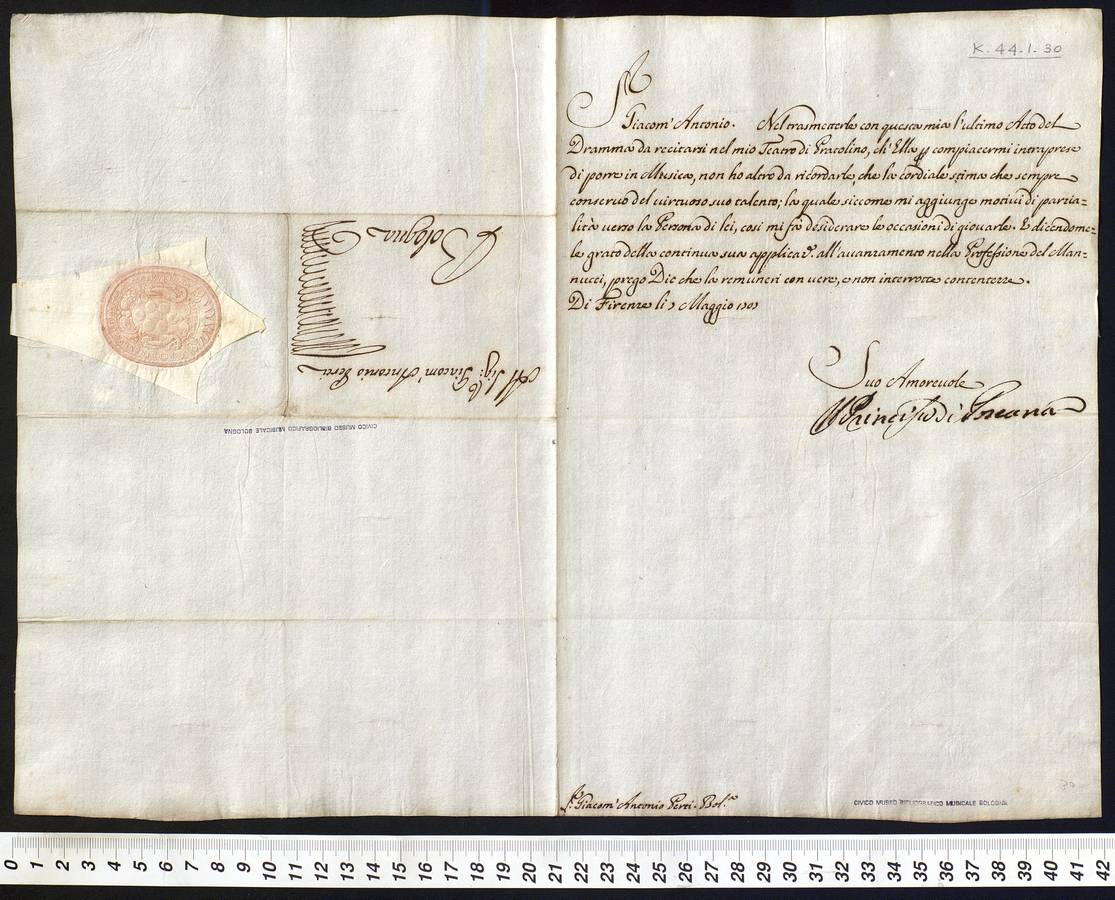 K. 44.1.30
Sr
Giacom' Antonio. Nel trasmetterle con questa mia l'ultimo Atto del
Dramma da recitarsi nel mio Teatro di Pratolino, ch'Ella p compiacermi intraprese
di porre in Musica, non ho altro da ricordarle, che la cordiale stima che sempre
conservo del virtuoso suo talento; la quale siccome mi aggiunge motivi di parzia=
lità verso la Persona di lei, così mi fà desiderare le occasioni di giovarle. E dicendome=
le grato della continua sua applicaz.e all'avanzamento nella Professione del Man=
nucci, prego Dio che la remuneri con vere, e non interrotte contentezze.
Di Firenze li Maggio
Suo Amorevole
Il Principe di Toscana
Sr. Giacom' Antonio Perti. Bol.a
CIVICO MUSEO BIBLIOGRAFICO MUSICALE BOLOGNA
30
Al Sig.r Giacom' Antonio Perti
Bologna
CIVICO MUSEO BIBLIOGRAFICO MUSICALE BOLOGNA
0 1 2 3 4 5 6 7 8 9 10 11 12 13 14 15 16 17 18 19 20 21 22 23 24 25 26 27 28 29 30 31 32 33 34 35 36 37 38 39 40 41 42